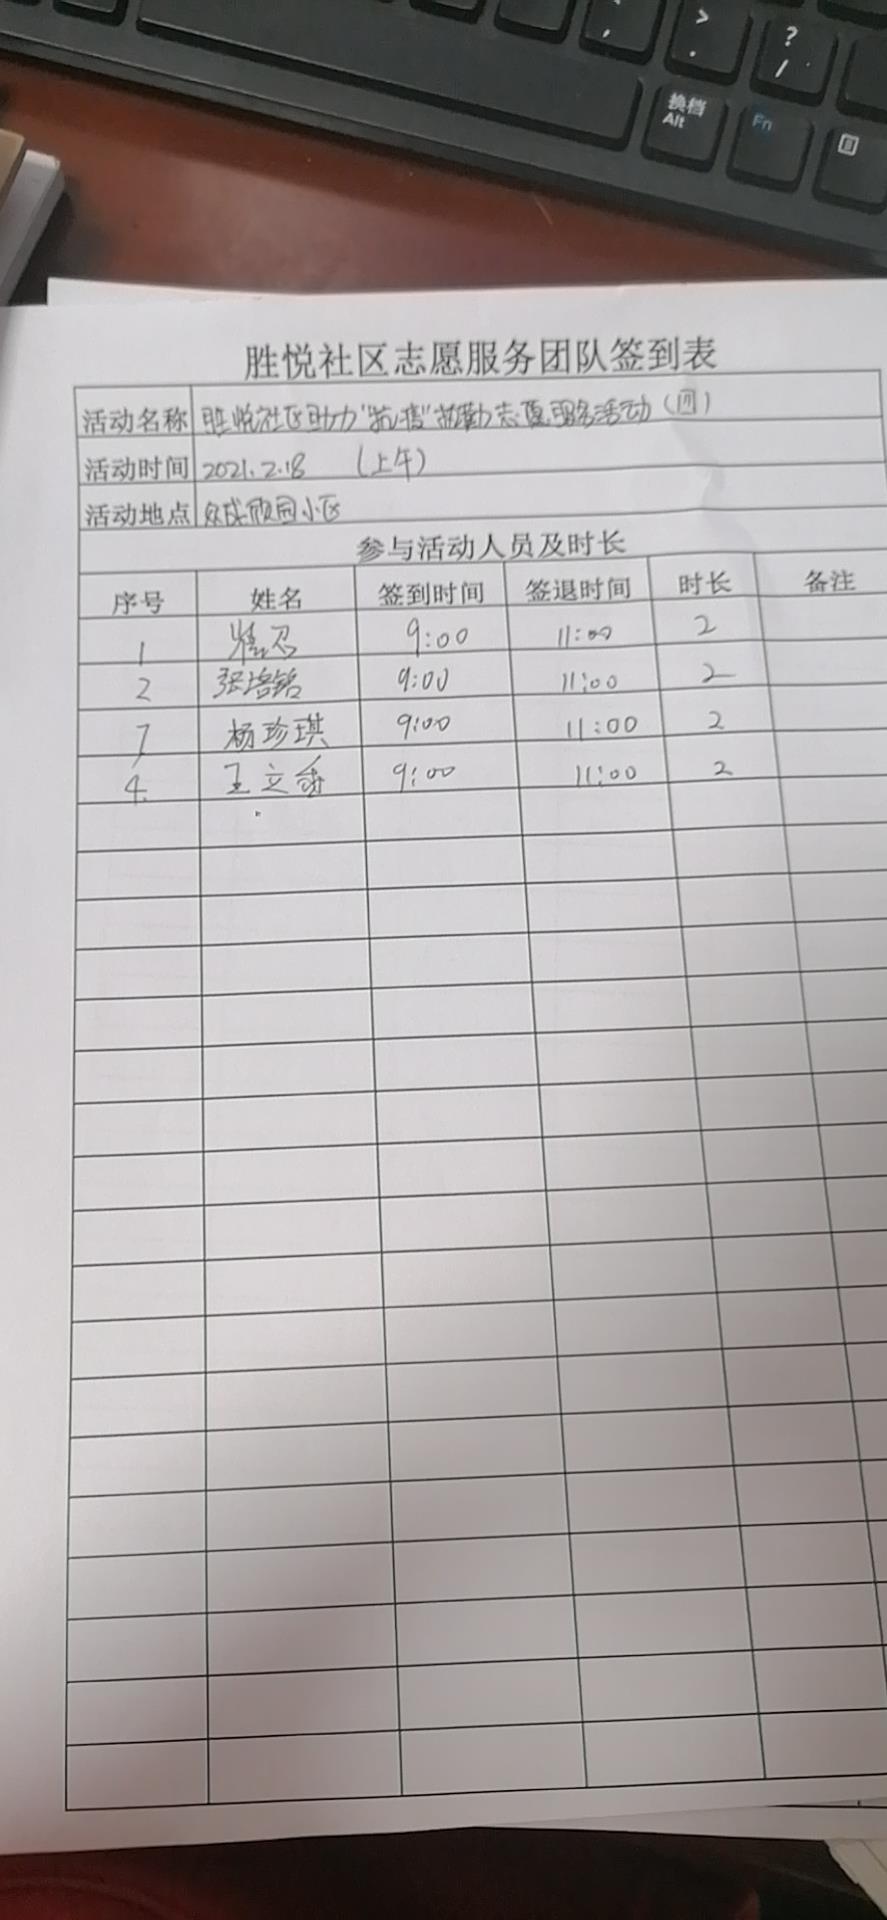 > .
,
? /
换档 Alt
Fn
胜悦社区志愿服务团队签到表
活动名称 胜悦社区助力“抗疫”执勤志愿服务活动(四)
活动时间 2021.2.18 (上午)
活动地点 众成颐园小区
参与活动人员及时长
序号 姓名 签到时间 签退时间 时长 备注
1 9:00 11:00 2
2 张培铭 9:00 11:00 2
3 杨珍琪 9:00 11:00 2
4. 王立香 9:00 11:00 2